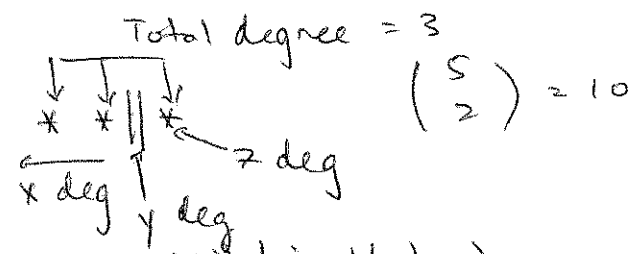 Total degree = 3
* * || *
(5 2) = 10
z deg
x deg
y deg